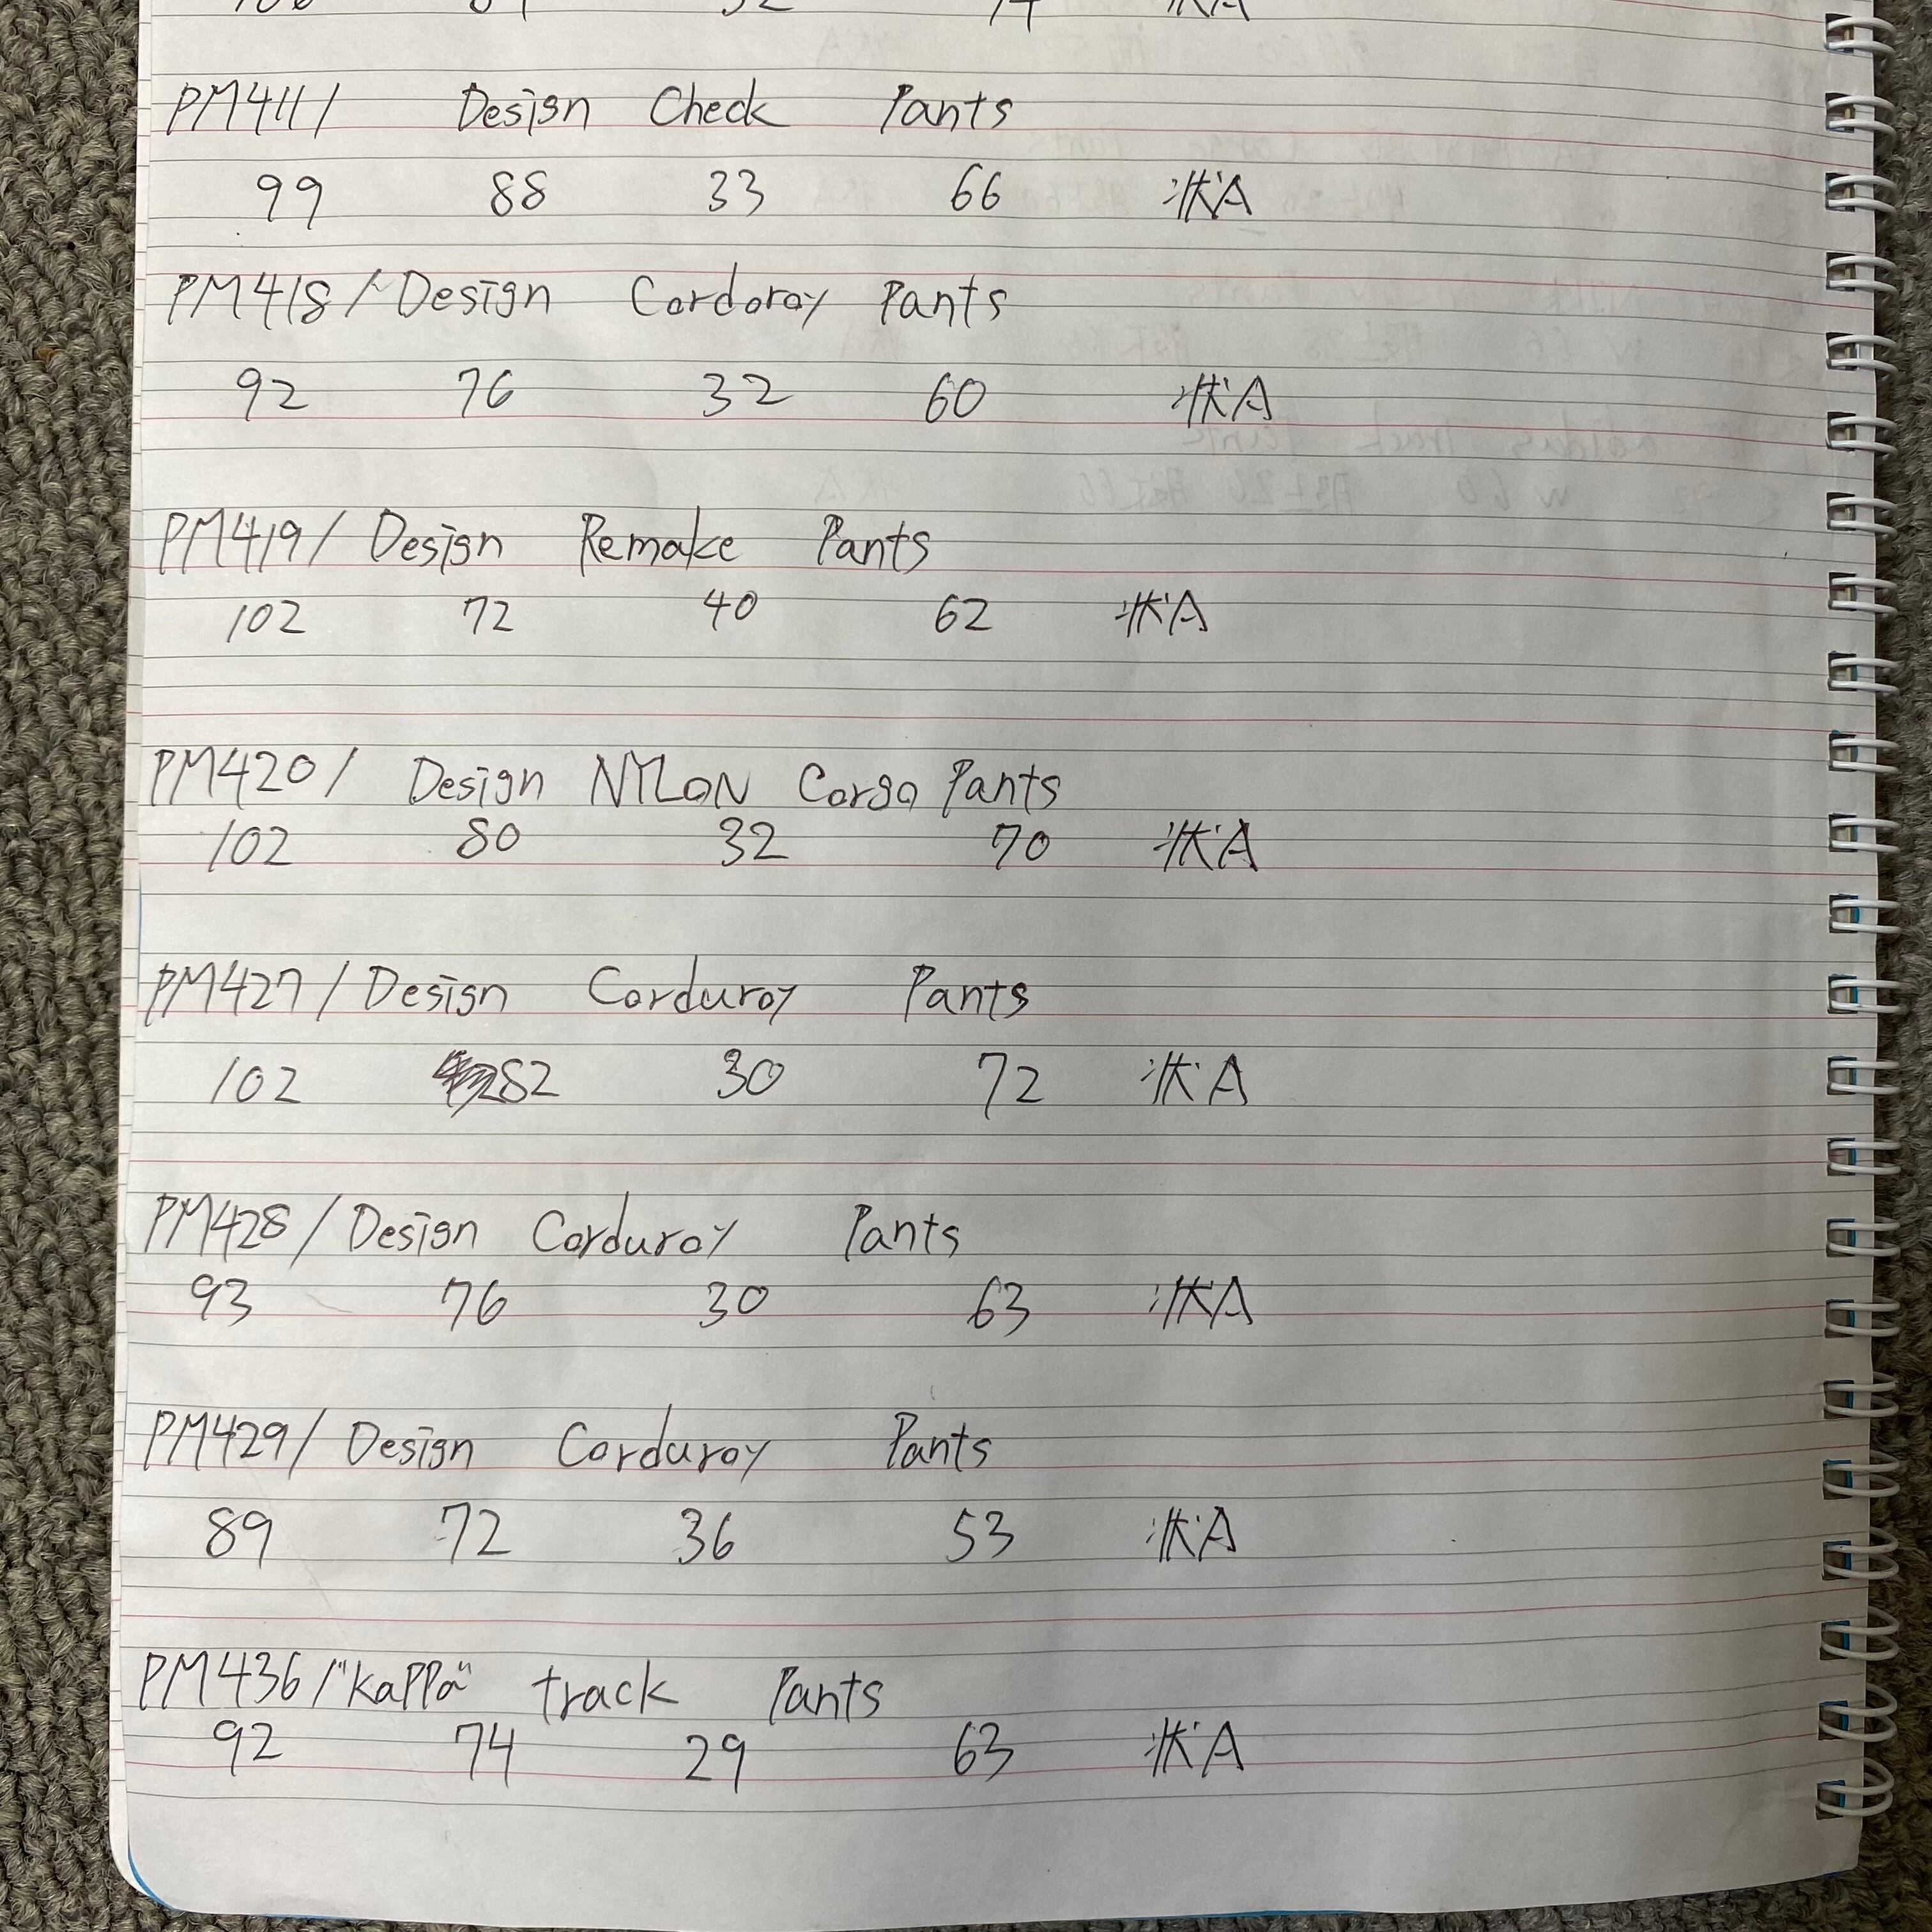 PM411/ Design Check Pants
99 88 33 66 状A
PM418/ Design Cordoroy Pants
92 76 32 60 状A
PM419/ Design Remake Pants
102 72 40 62 状A
PM420/ Design NYLON Corgo Pants
102 80 32 70 状A
PM427/ Design Corduroy Pants
102 82 30 72 状A
PM428/ Design Corduroy Pants
93 76 30 63 状A
PM429/ Design Corduroy Pants
89 72 36 53 状A
PM436/ "kaPPa" track Pants
92 74 29 63 状A